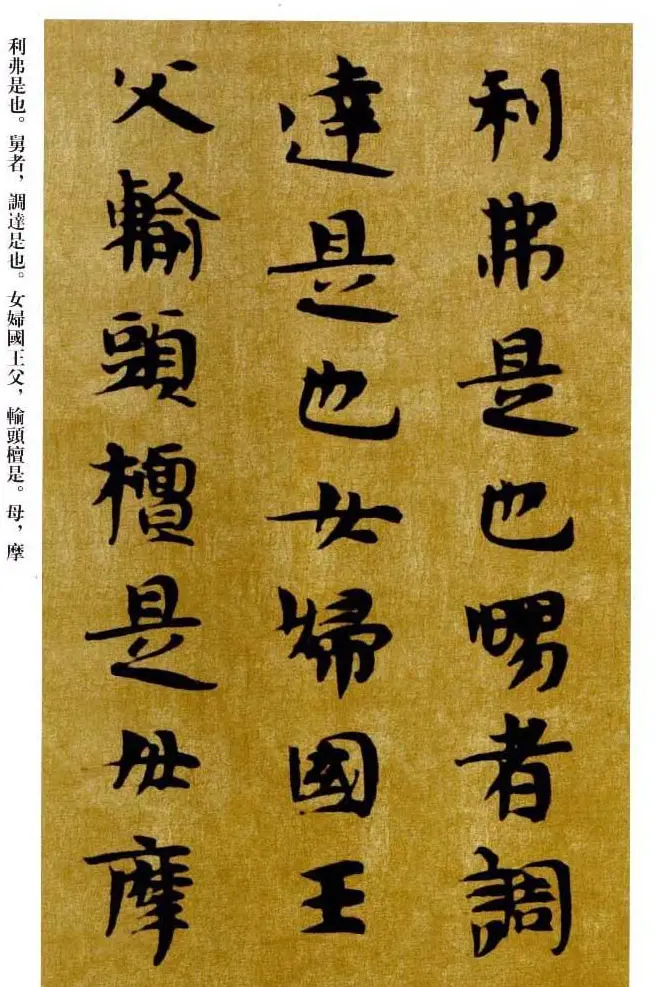 利弗是也甥者調
達是也女婦國王
父輸頭檀是毋摩
利弗是也。舅者，調達是也。女婦國王父，輸頭檀是。母，摩